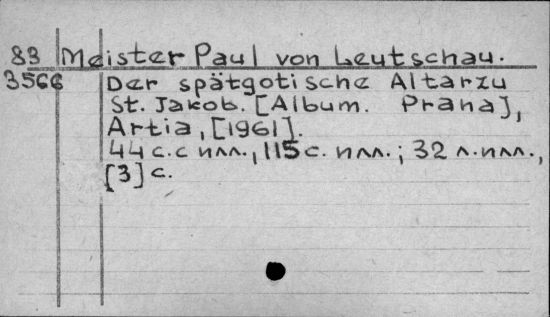 83 Meister Paul von Leutschau.
3566 Der spätgotische Altar zu
St. Jakob. [Album. Praha],
Artia, [1961].
44 с. с илл., 115 с. илл.; 32 л. илл.,
[3] с.